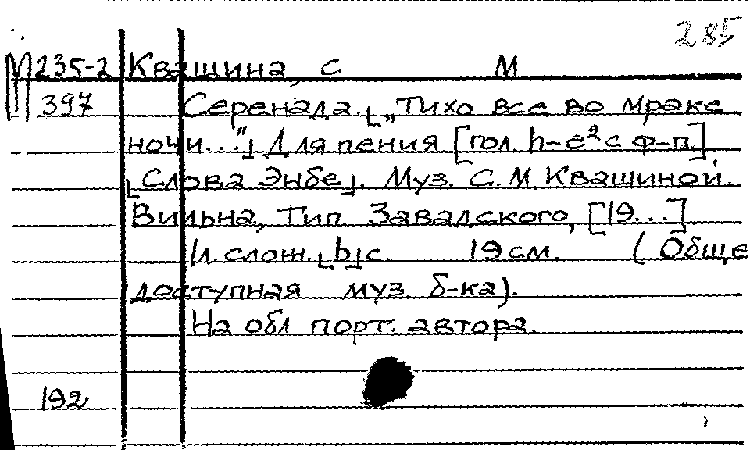 285
М 235-2 Квашина, С М
397 Серенада. ⌞„Тихо все во мраке
ночи..."⌟ Для пения [гол. h-e² с ф-п.]
⌞Слова Энбе⌟. Муз. С. М. Квашиной.
Вильна, Тип. Завадского, [19...]
1 л. слож. ⌞b⌟ с. 19 см. (Обще
доступная муз. б-ка).
На обл. порт. автора.
192